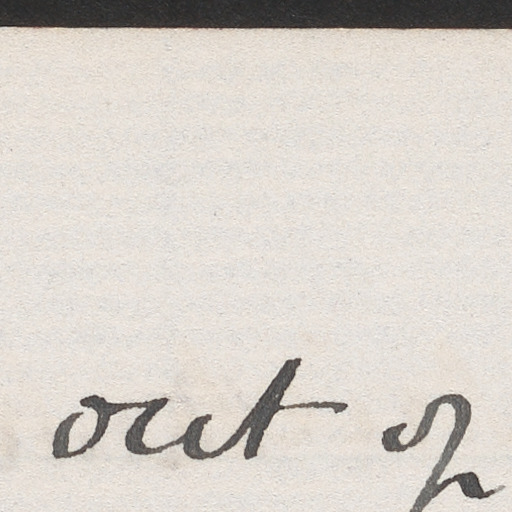 out of